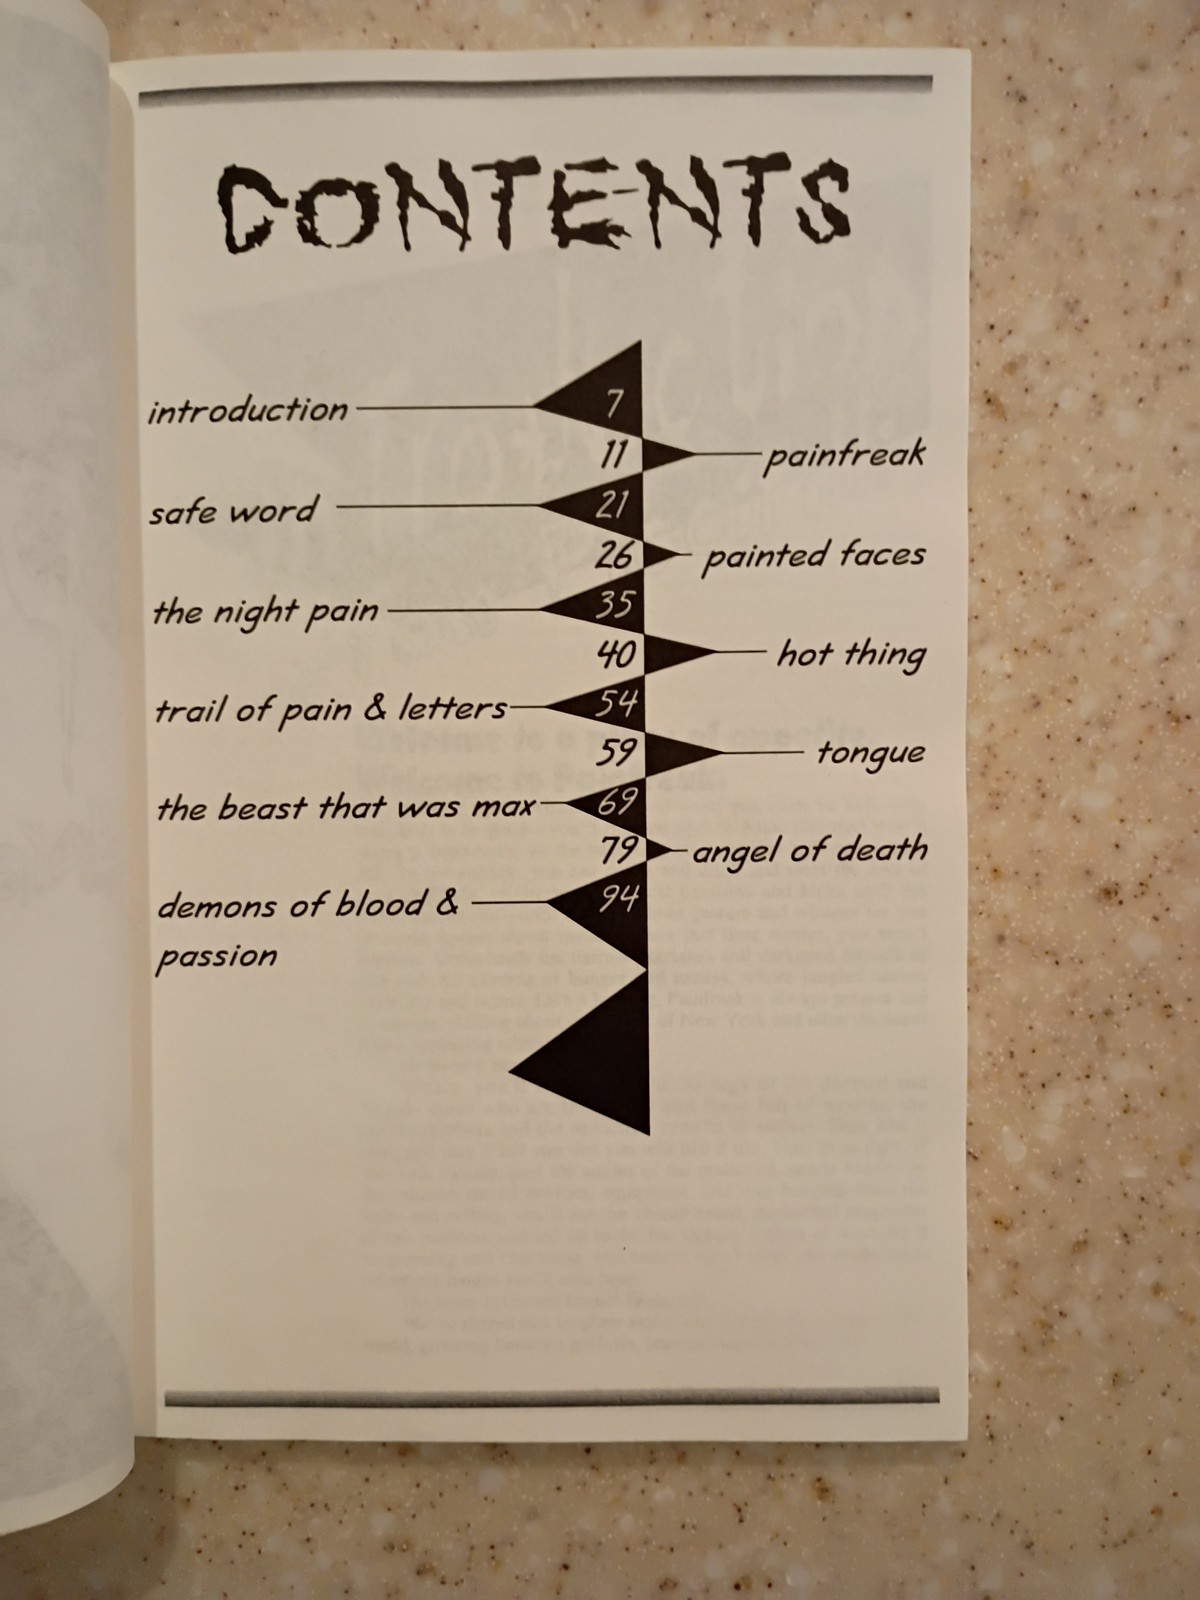 CONTENTS
introduction 7
11 painfreak
safe word 21
26 painted faces
the night pain 35
40 hot thing
trail of pain & letters 54
59 tongue
the beast that was max 69
79 angel of death
demons of blood & 94
passion